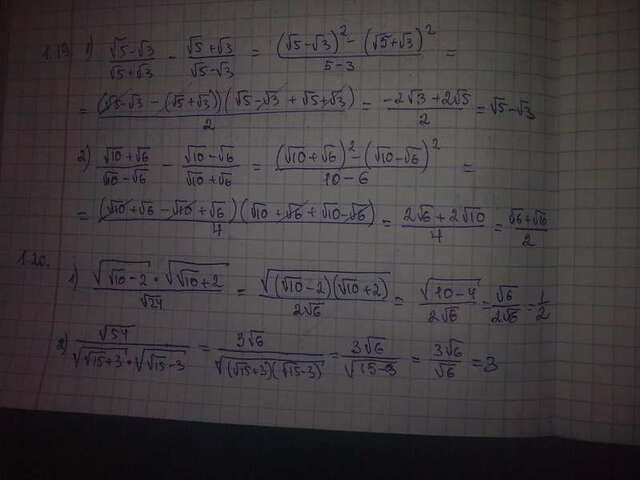 1.19. 1) (√5-√3)/(√5+√3) - (√5+√3)/(√5-√3) = ((√5-√3)² - (√5+√3)²)/(5-3) =
= ((√5-√3 - (√5+√3))(√5-√3 + √5+√3))/2 = (-2√3+2√5)/2 = √5-√3
2) (√10+√6)/(√10-√6) - (√10-√6)/(√10+√6) = ((√10+√6)² - (√10-√6)²)/(10-6) =
= ((√10+√6-√10+√6)(√10+√6+√10-√6))/4 = (2√6+2√10)/4 = (√6+√10)/2
1.20.
1) (√(√10-2) · √(√10+2))/√24 = √((√10-2)(√10+2))/(2√6) = √(10-4)/(2√6) = √6/(2√6) = 1/2
2) √54/(√(√15+3) · √(√15-3)) = 3√6/√((√15+3)(√15-3)) = 3√6/√(15-9) = 3√6/√6 = 3